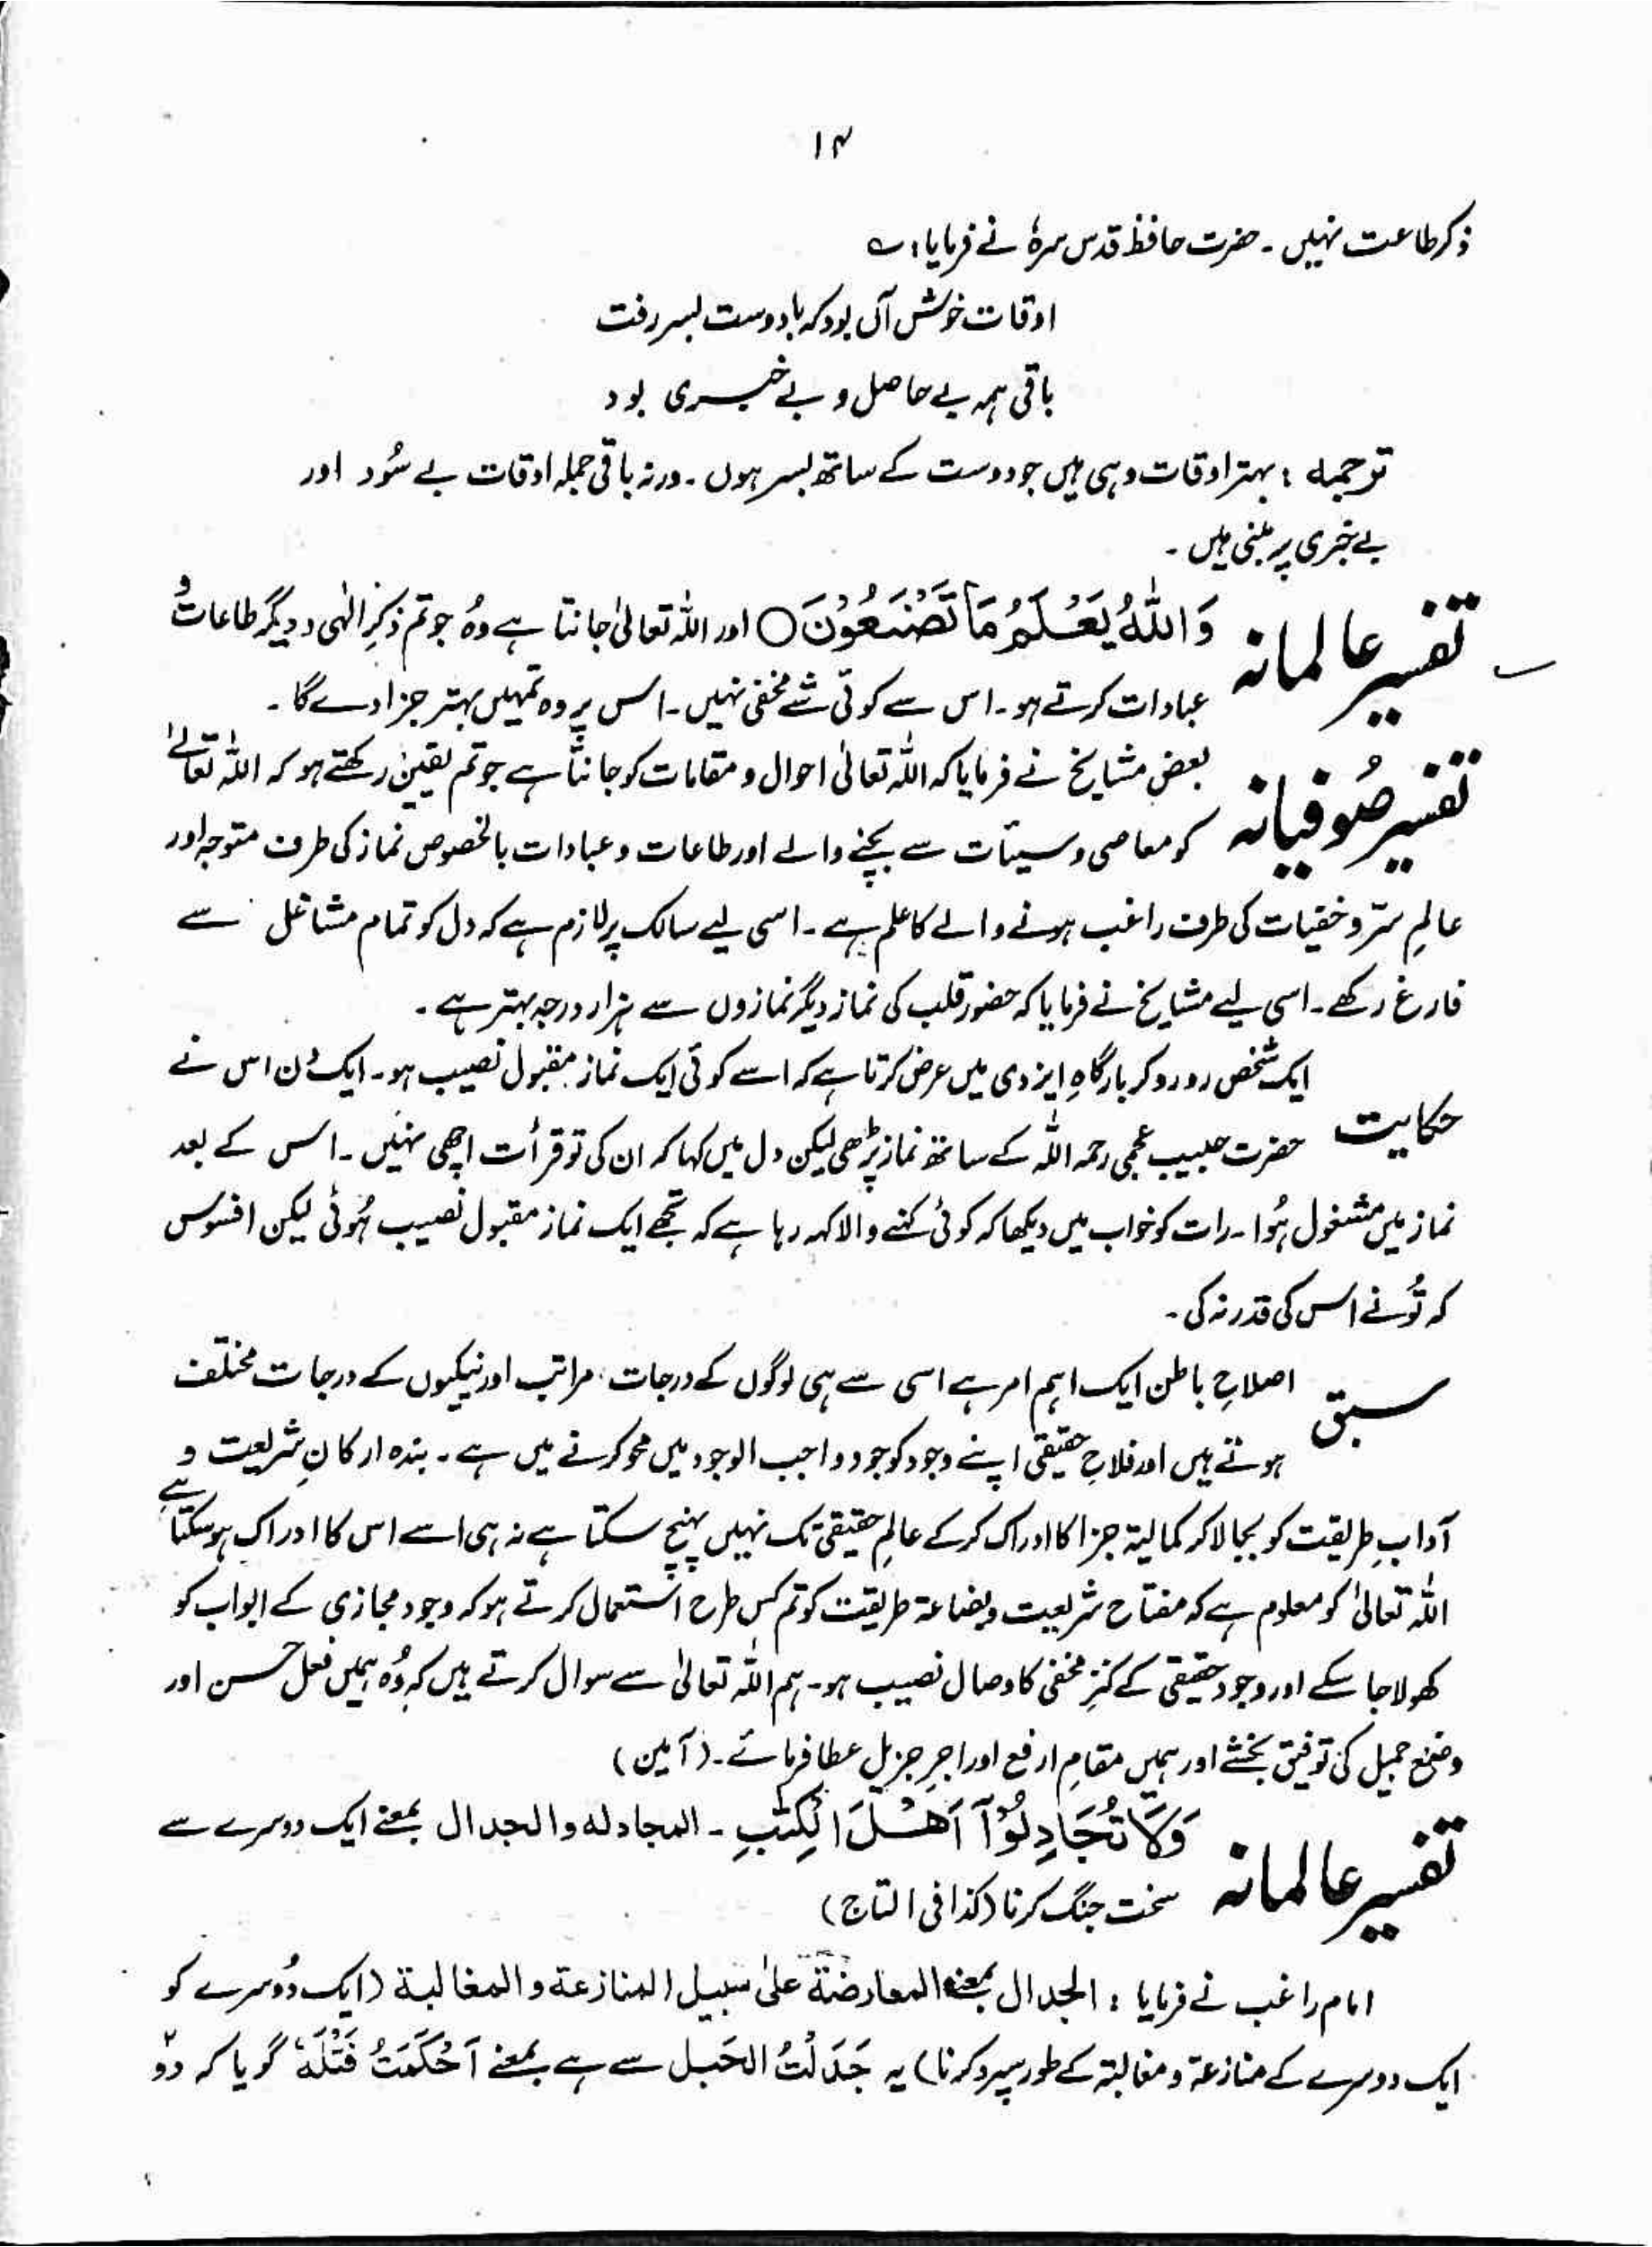 ۱۴
ذکر طاعت نہیں ۔ حضرت حافظ قدس سرہٗ نے فرمایا : ے
اوقات خوش آں بود کہ با دوست بسر رفت
باقی ہمہ بے حاصل و بے خبری بود
ترجمہ : بہتر اوقات وہی ہیں جو دوست کے ساتھ بسر ہوں ۔ ورنہ باقی جملہ اوقات بے سُود اور
بے خبری پر مبنی ہیں ۔
تفسیر عالمانہ وَاللّٰہُ یَعْلَمُ مَا تَصْنَعُوْنَ○ اور اللہ تعالیٰ جانتا ہے وہُ جو تم ذکرِ الٰہی و دیگر طاعات و
عبادات کرتے ہو ۔ اس سے کوئی شے مخفی نہیں ۔ اس پر وہ تمہیں بہتر جزا دے گا ۔
تفسیر صُوفیانہ بعض مشایخ نے فرمایا کہ اللہ تعالیٰ احوال و مقامات کو جانتا ہے جو تم یقین رکھتے ہو کہ اللہ تعالیٰ
کو معاصی و سیئات سے بچنے والے اور طاعات و عبادات بالخصوص نماز کی طرف متوجہ اور
عالمِ سرّ و خفیات کی طرف راغب ہونے والے کا علم ہے ۔ اسی لیے سالک پر لازم ہے کہ دل کو تمام مشاغل سے
فارغ رکھے ۔ اسی لیے مشایخ نے فرمایا کہ حضور قلب کی نماز دیگر نمازوں سے ہزار درجہ بہتر ہے ۔
حکایت ایک شخص رو رو کر بارگاہِ ایزدی میں عرض کرتا ہے کہ اسے کوئی ایک نماز مقبول نصیب ہو ۔ ایک دن اس نے
حضرت حبیب عجمی رحمہ اللہ کے ساتھ نماز پڑھی لیکن دل میں کہا کہ ان کی تو قرأت اچھی نہیں ۔ اس کے بعد
نماز میں مشغول ہُوا ۔ رات کو خواب میں دیکھا کہ کوئی کہنے والا کہہ رہا ہے کہ تجھے ایک نماز مقبول نصیب ہُوئی لیکن افسوس
کہ تُو نے اس کی قدر نہ کی ۔
سبق اصلاحِ باطن ایک اہم امر ہے اسی سے ہی لوگوں کے درجات ، مراتب اور نیکیوں کے درجات مختلف
ہوتے ہیں اور فلاحِ حقیقی اپنے وجود کو جود واجب الوجود میں محو کرنے میں ہے ۔ بندہ ارکانِ شریعت و
آدابِ طریقت کو بجا لا کر کمالیۃ جزا کا ادراک کرکے عالمِ حقیقی تک نہیں پہنچ سکتا ہے نہ ہی اسے اس کا ادراک ہو سکتا ہے
اللہ تعالیٰ کو معلوم ہے کہ مفتاح شریعت و بضاعۃ طریقت کو تم کس طرح استعمال کرتے ہو کہ وجود مجازی کے ابواب کو
کھولا جا سکے اور وجود حقیقی کے کنزِ مخفی کا وصال نصیب ہو ۔ ہم اللہ تعالیٰ سے سوال کرتے ہیں کہ وُہ ہمیں فعل حسن اور
وضع جمیل کی توفیق بخشے اور ہمیں مقامِ ارفع اور اجرِ جزیل عطا فرمائے ۔ (آمین)
تفسیر عالمانہ وَلَا تُجَادِلُوْۤا اَھْلَ الْکِتٰبِ ۔ المجادلہ و الجدال بمعنے ایک دوسرے سے
سخت جنگ کرنا (کذا فی التاج)
امام راغب نے فرمایا : الجدال بمعنے المعارضۃ علیٰ سبیل المنازعۃ و المغالبۃ (ایک دُوسرے کو
ایک دوسرے کے منازعۃ و مغالبۃ کے طور سپرد کرنا) یہ جَدَلْتُ الحَبل سے ہے بمعنے اَحْکَمْتُ فَتْلَہٗ گویا کہ دو